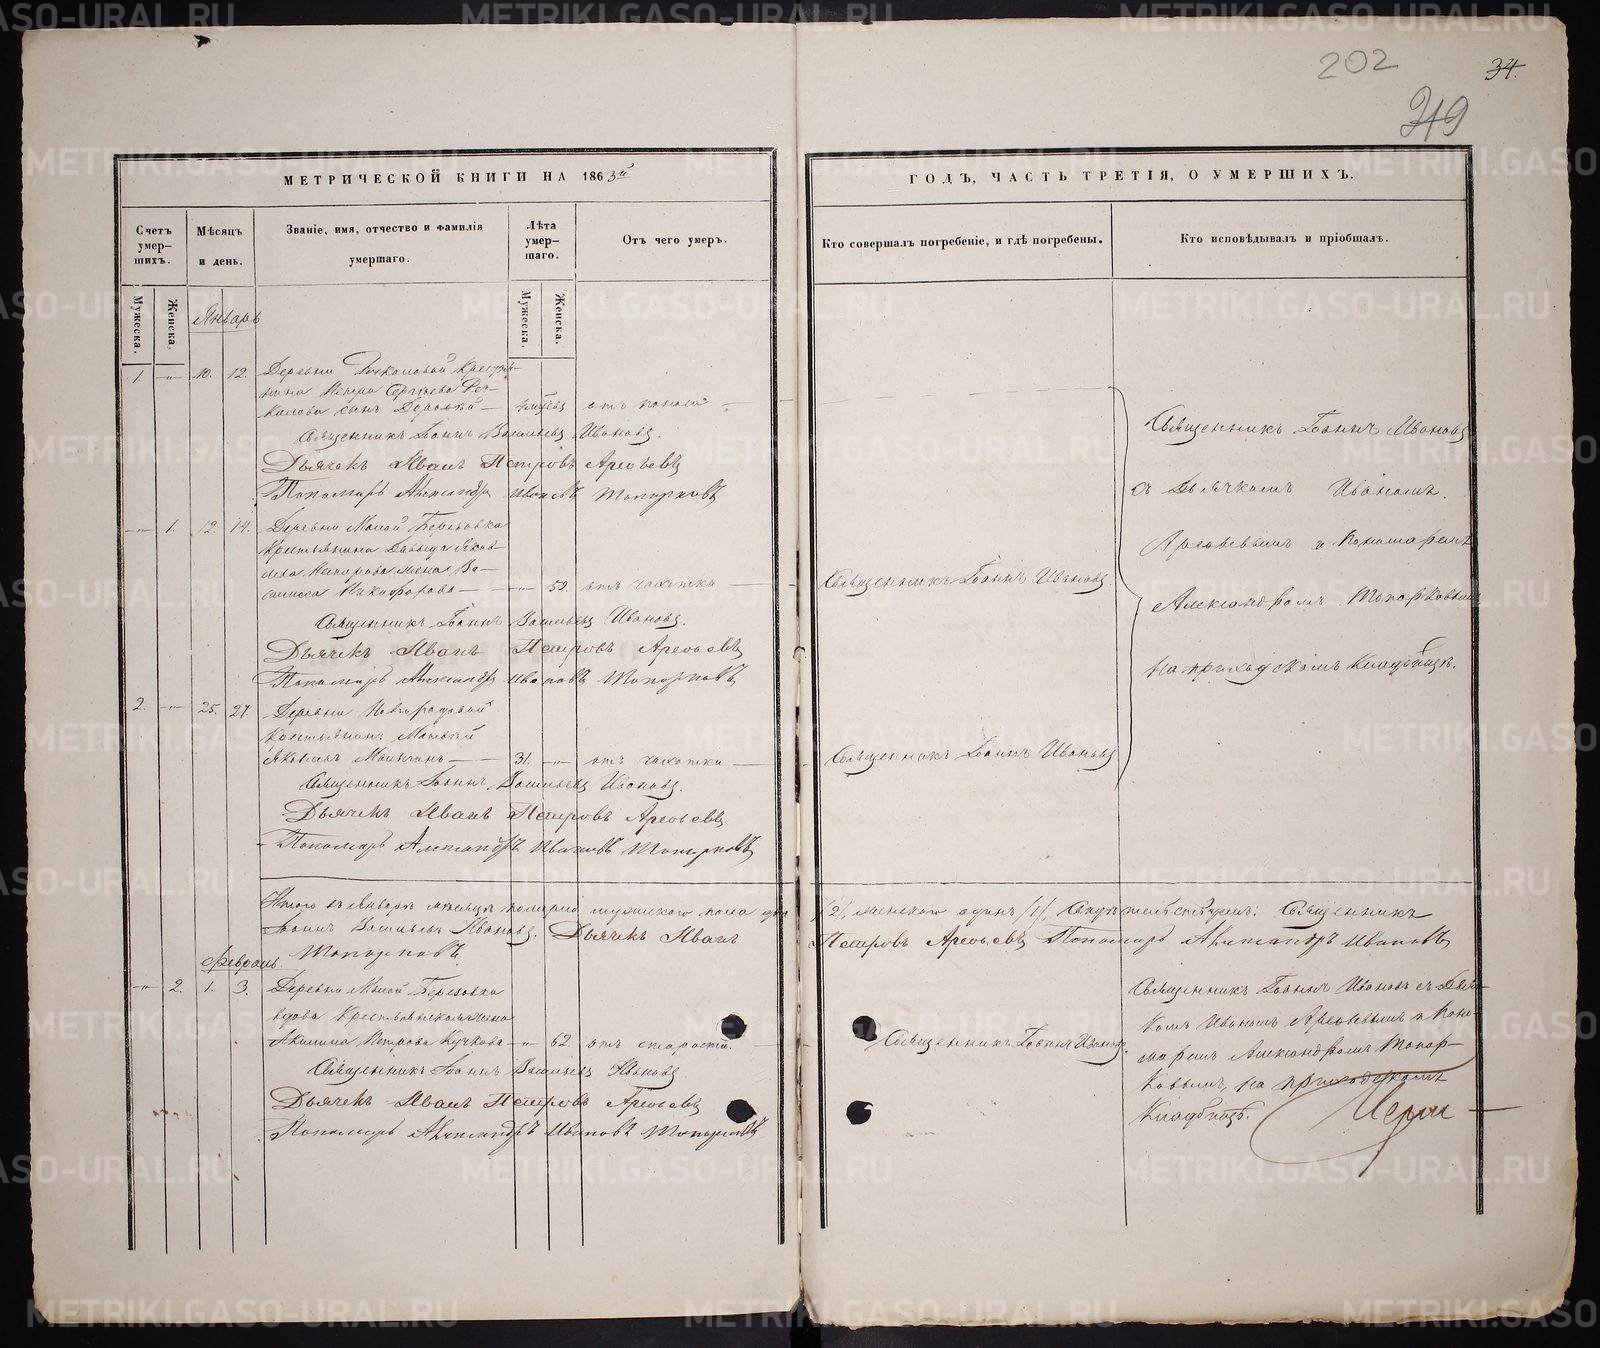 202
34.
319
МЕТРИЧЕСКОЙ КНИГИ НА 1863й
ГОДЪ, ЧАСТЬ ТРЕТІЯ, О УМЕРШИХЪ.
Счетъ умер-
шихъ.
Мѣсяцъ
и день.
Званіе, имя, отчество и фамилія
умершаго.
Лѣта
умер-
шаго.
Отъ чего умеръ.
Кто совершалъ погребеніе, и гдѣ погребены.
Кто исповѣдывалъ и пріобщалъ.
Мужеска.
Женска.
Мужеска.
Женска.
Январь
1. —"— 10. 12. Деревни
сынъ — отъ поноса —
Священникъ Іоаннъ Васильевъ Ивановъ.
Дьячекъ Иванъ Петровъ Арефьевъ
Пономарь Александръ Ивановъ Топорковъ
—"— 1. 12. 14. Деревни Малой Березовки
Крестьянина Давыда Яков-
лева жена Ва-
силиса Никифорова — —"— 59. отъ чахотки —
Священникъ Іоаннъ Васильевъ Ивановъ.
Дьячекъ Иванъ Петровъ Арефьевъ
Пономарь Александръ Ивановъ Топорковъ
2. —"— 25. 27. Деревни
Крестьянинъ
Яковлевъ — 31. —"— отъ чахотки —
Священникъ Іоаннъ Васильевъ Ивановъ.
Дьячекъ Иванъ Петровъ Арефьевъ
Пономарь Александръ Ивановъ Топорковъ
Священникъ Іоаннъ Ивановъ
Священникъ Іоаннъ Ивановъ
Священникъ Іоаннъ Ивановъ
съ Дьячкомъ Иваномъ
Арефьевымъ и Пономаремъ
Александромъ Топорковымъ
на приходскомъ кладбищѣ.
Итого въ Январѣ мѣсяцѣ померло мужеска пола два /2/, женскаго одинъ /1/, Свидѣтельствуемъ: Священникъ
Іоаннъ Васильевъ Ивановъ. Дьячекъ Иванъ Петровъ Арефьевъ Пономарь Александръ Ивановъ
Топорковъ.
Февраль
—"— 2. 1. 3. Деревни Малой Березовки
вдова Крестьянская жена
Акилина Петрова — —"— 62. отъ старости. —
Священникъ Іоаннъ Васильевъ Ивановъ.
Дьячекъ Иванъ Петровъ Арефьевъ
Пономарь Александръ Ивановъ Топорковъ
Священникъ Іоаннъ Ивановъ.
Священникъ Іоаннъ Ивановъ съ Дьяч-
комъ Иваномъ Арефьевымъ и Поно-
маремъ Александромъ Топор-
ковымъ, на приходскомъ
кладбищѣ.
METRIKI.GASO-URAL.RU